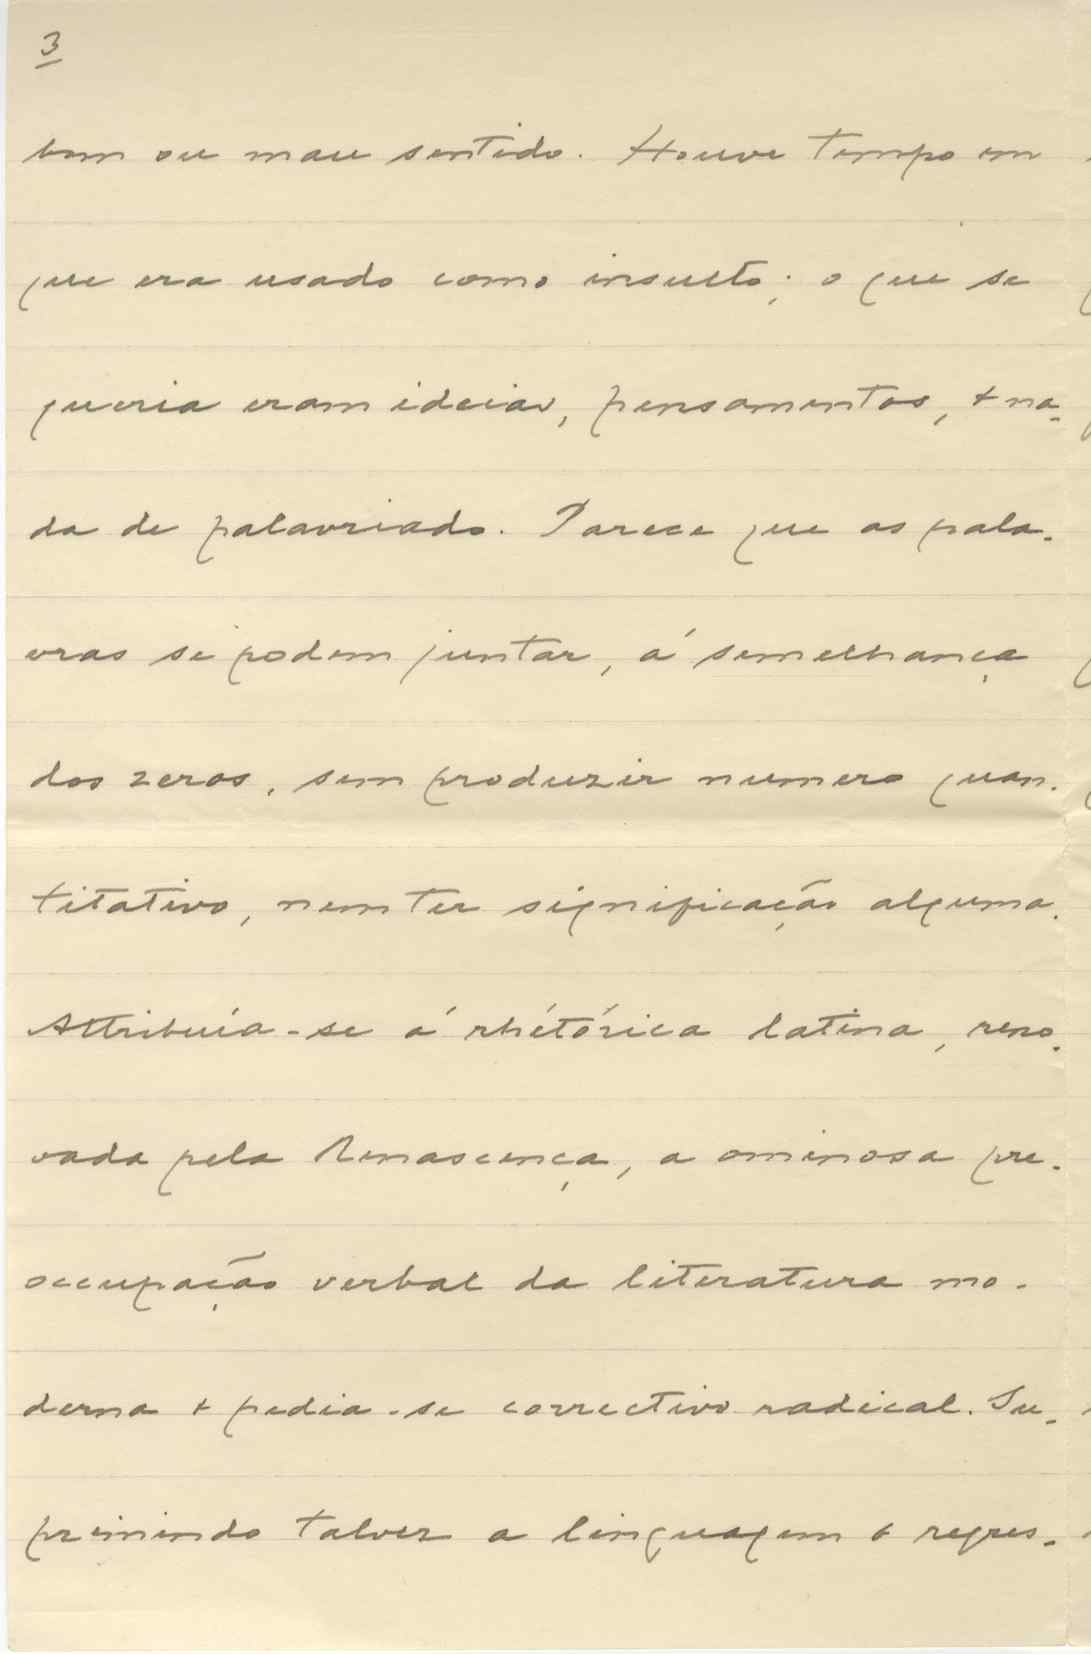 3
bom ou mau sentido. Houve tempo em
que era usado como insulto; o que se
queria eram ideias, pensamentos, + na-
da de palavriado. Parece que as pala-
vras se podem juntar, á semelhança
dos zeros, sem produzir numero quan-
titativo, nem ter significação alguma.
Attribuía-se á rhétórica latina, reno-
vada pela Renascença, a ominosa pre-
occupação verbal da literatura mo-
derna + pedia-se correctivo radical. Su-
primindo talvez a linguagem + regres-